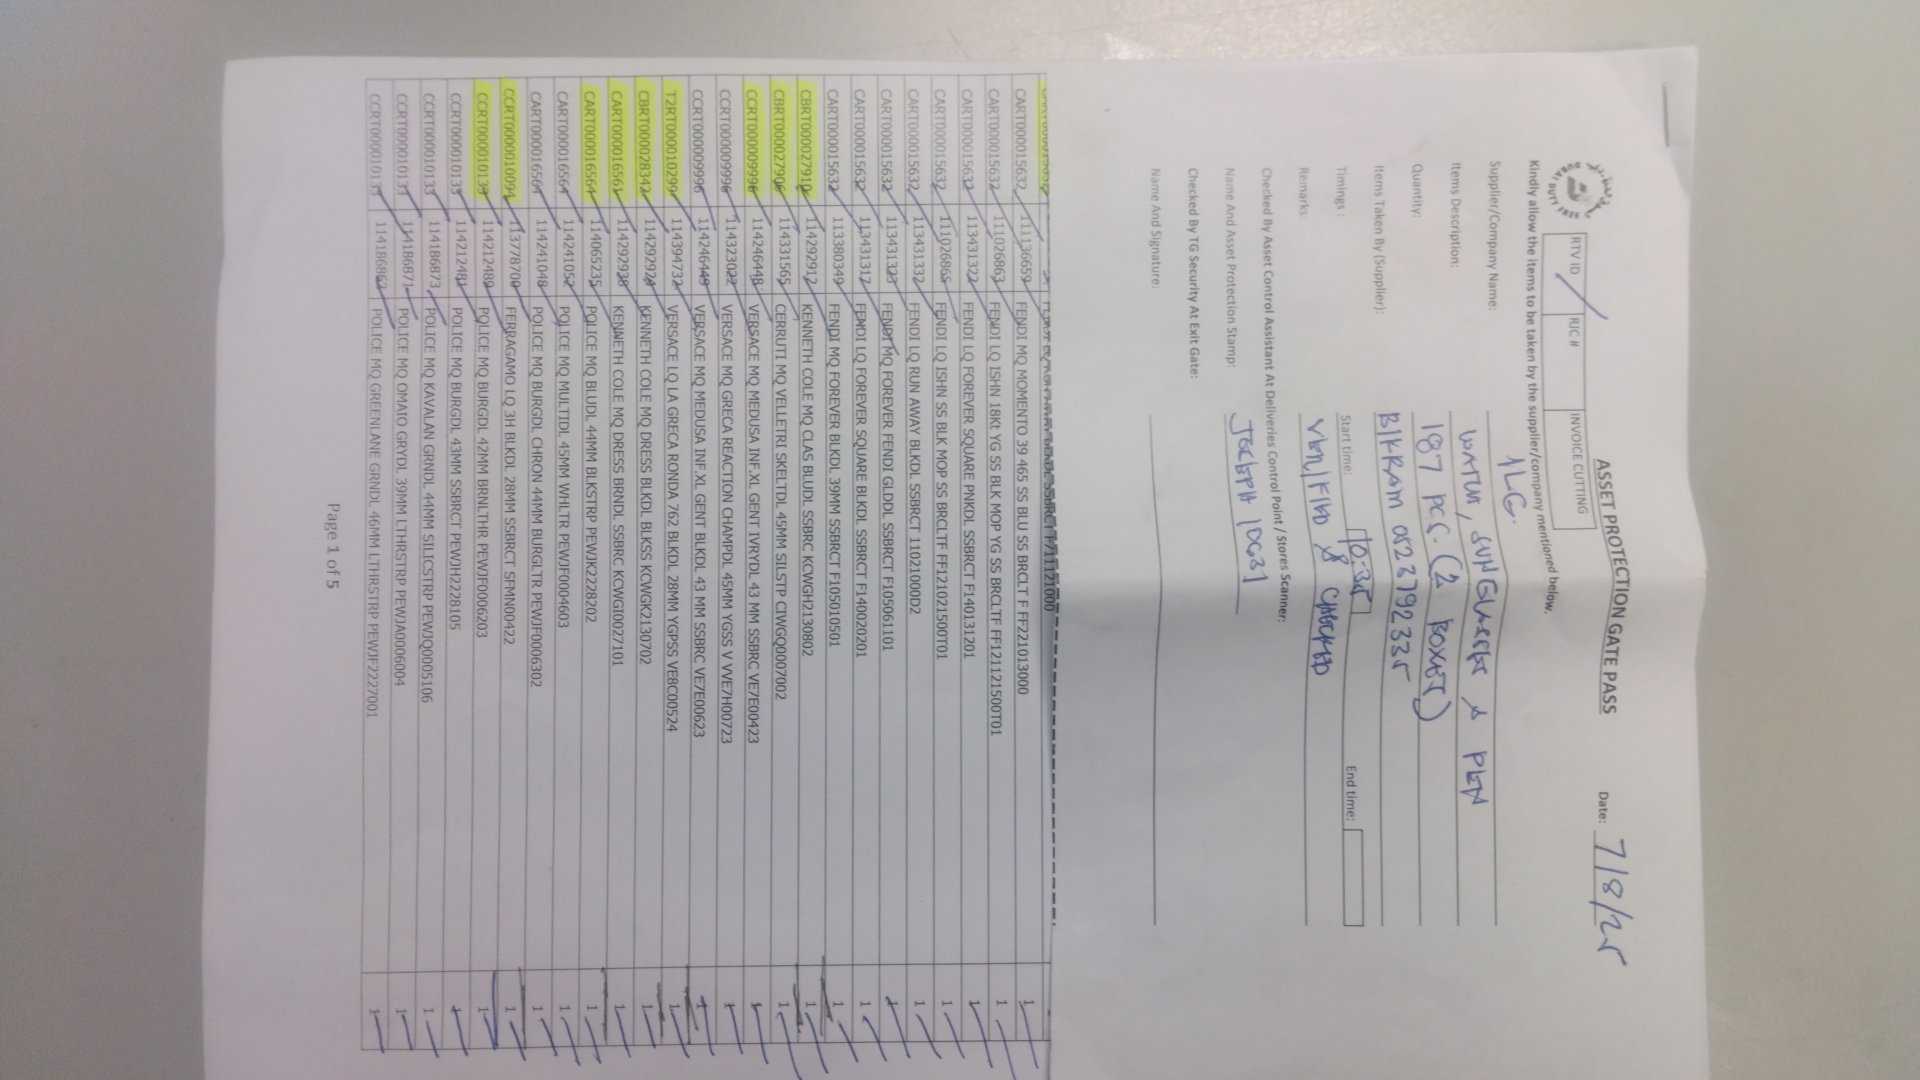 ASSET PROTECTION GATE PASS
Date: 7/8/25
DUBAI DUTY FREE
RTV ID RJC # INVOICE CUTTING
Kindly allow the items to be taken by the supplier/company mentioned below.
Supplier/Company Name: ILG.
Items Description: WATCH, SUNGLASSES & PEN
Quantity: 187 PCS. (2 BOXES)
Items Taken By (Supplier): BIKRAM 0523792335
Timings : Start time: 10:35 End time:
Remarks: & CHECKED
Checked By Asset Control Assistant At Deliveries Control Point / Stores Scanner:
Name And Asset Protection Stamp: JOSEPH 10631
Checked By TG Security At Exit Gate:
Name And Signature:
CART000015632 111136659 FENDI MQ MOMENTO 39 465 SS BLU SS BRCLT F FF221013000 1
CART000015632 111026863 FENDI LQ ISHN 18Kt YG SS BLK MOP YG SS BRCLTF FF121121500T01 1
CART000015632 113431322 FENDI LQ FOREVER SQUARE PNKDL SSBRCT F140131201 1
CART000015632 111026865 FENDI LQ ISHN SS BLK MOP SS BRCLTF FF121021500T01 1
CART000015632 113431332 FENDI LQ RUN AWAY BLKDL SSBRCT 11021000D2 1
CART000015632 113431323 FENDI MQ FOREVER FENDI GLDDL SSBRCT F105061101 1
CART000015632 113431317 FENDI LQ FOREVER SQUARE BLKDL SSBRCT F140020201 1
CART000015632 113380349 FENDI MQ FOREVER BLKDL 39MM SSBRCT F105010501 1
CBRT000027910 114292912 KENNETH COLE MQ CLAS BLUDL SSBRC KCWGH2130802 1
CBRT000027906 114331565 CERRUTI MQ VELLETRI SKELTDL 45MM SILSTP CIWGQ0007002 1
CCRT000009996 114246448 VERSACE MQ MEDUSA INF.XL GENT IVRYDL 43 MM SSBRC VE7E00423 1
CCRT000009996 114323022 VERSACE MQ GRECA REACTION CHAMPDL 45MM YGSS V VVE7H00723 1
CCRT000009996 114246449 VERSACE MQ MEDUSA INF.XL GENT BLKDL 43 MM SSBRC VE7E00623 1
T2RT000010299 114394732 VERSACE LQ LA GRECA RONDA 762 BLKDL 28MM YGPSS VE8C00524 1
CBRT000028342 114292924 KENNETH COLE MQ DRESS BLKDL BLKSS KCWGK2130702 1
CART000016561 114292938 KENNETH COLE MQ DRESS BRNDL SSBRC KCWGI0027101 1
CART000016564 114065235 POLICE MQ BLUDL 44MM BLKSTRP PEWJK2228202 1
CART000016564 114241052 POLICE MQ MULTIDL 45MM WHLTR PEWJF0004603 1
CART000016564 114241048 POLICE MQ BURGDL CHRON 44MM BURGLTR PEWJF0006302 1
CCRT000010094 113778700 FERRAGAMO LQ 3H BLKDL 28MM SSBRCT SFMN00422 1
CCRT000010133 114212489 POLICE MQ BURGDL 42MM BRNLTHR PEWJF0006203 1
CCRT000010133 114212481 POLICE MQ BURGDL 43MM SSBRCT PEWJH2228105 1
CCRT000010133 114186873 POLICE MQ KAVALAN GRNDL 44MM SILICSTRP PEWJQ0005106 1
CCRT000010133 114186871 POLICE MQ OMAIO GRYDL 39MM LTHRSTRP PEWJA0006004 1
CCRT000010133 114186863 POLICE MQ GREENLANE GRNDL 46MM LTHRSTRP PEWJF2227001 1
Page 1 of 5